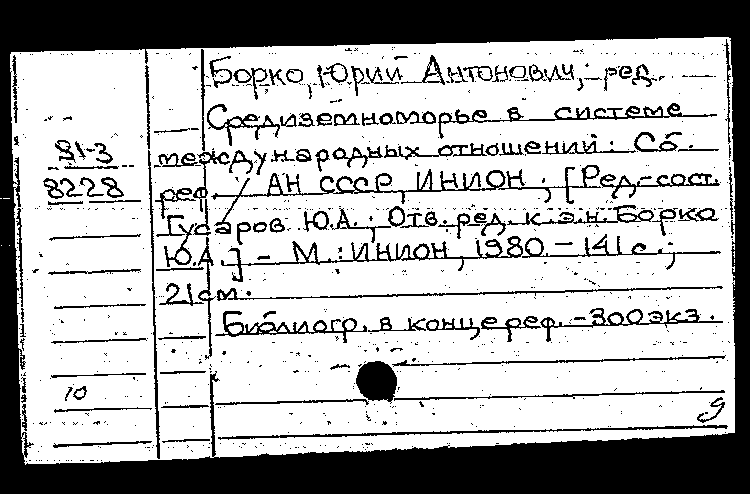 Борко, Юрий Антонович, ред.
Средиземноморье в системе
81-3 международных отношений: Сб.
8228 реф. / АН СССР, ИНИОН; [Ред.-сост.
Гусаров Ю.А.; Отв. ред. к.э.н. Борко
Ю.А.] - М.: ИНИОН, 1980. - 141 с.;
21 см.
Библиогр. в конце реф. - 300 экз.
10
9